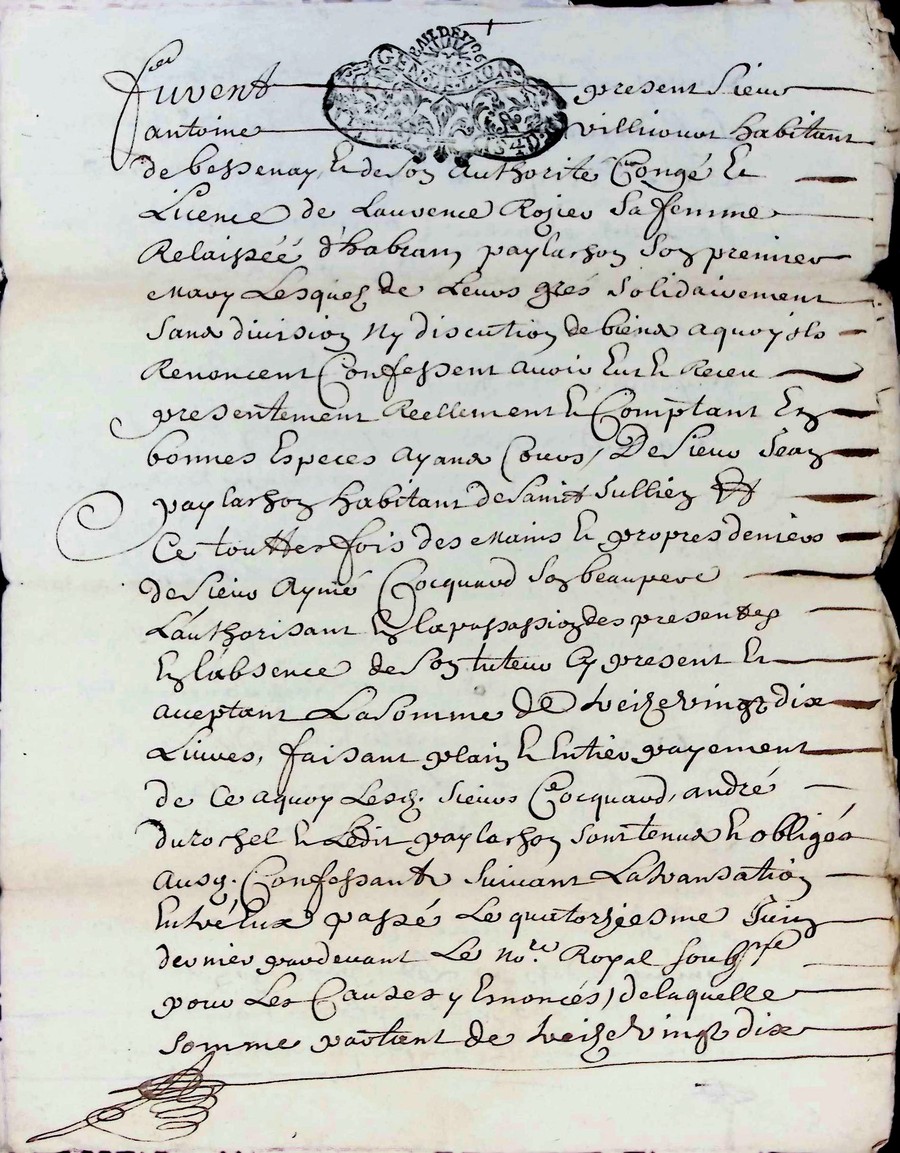 furent present Sieur
antoine villiemot habitant
de bessenay, Et de son authorite Congé Et
Licence de Laurence Rozier Sa femme
Relaissée d'habram paylachon Son premier
Mary Lesquelz de Leurs grés Solidairement
Sans division Ny discution de biens aquoy ils
Renoncent Confessent avoir Eut Et Receu
presentement Reellement Et Comptant En
bonnes Especes Ayans Cours, De Sieur Jean
paylachon habitant de Sainct Jullien Et
Ce touttesfois des Mains Et propres deniers
de Sieur Aymé Cocquard Son beaupere
L'authorisant En la passassion des presentes
En l'absence de Son tuteur Cy present Et
aceptant La Somme de treize vingt dix
Livres, faisant plain Et Entier payement
de Ce aquoy Lesd. Sieurs Cocquard, andré
durochel Et Ledit paylachon Sont tenus Et obligés
Ausd. Confessants Suivant La transation
Entre Eux passé Le quatorziesme Juin
dernier pardevant Le No.re Royal Soubsne
pour Les Causes y Ennoncés, de laquelle
Somme partant de treize Vingt dix
GEN
ION